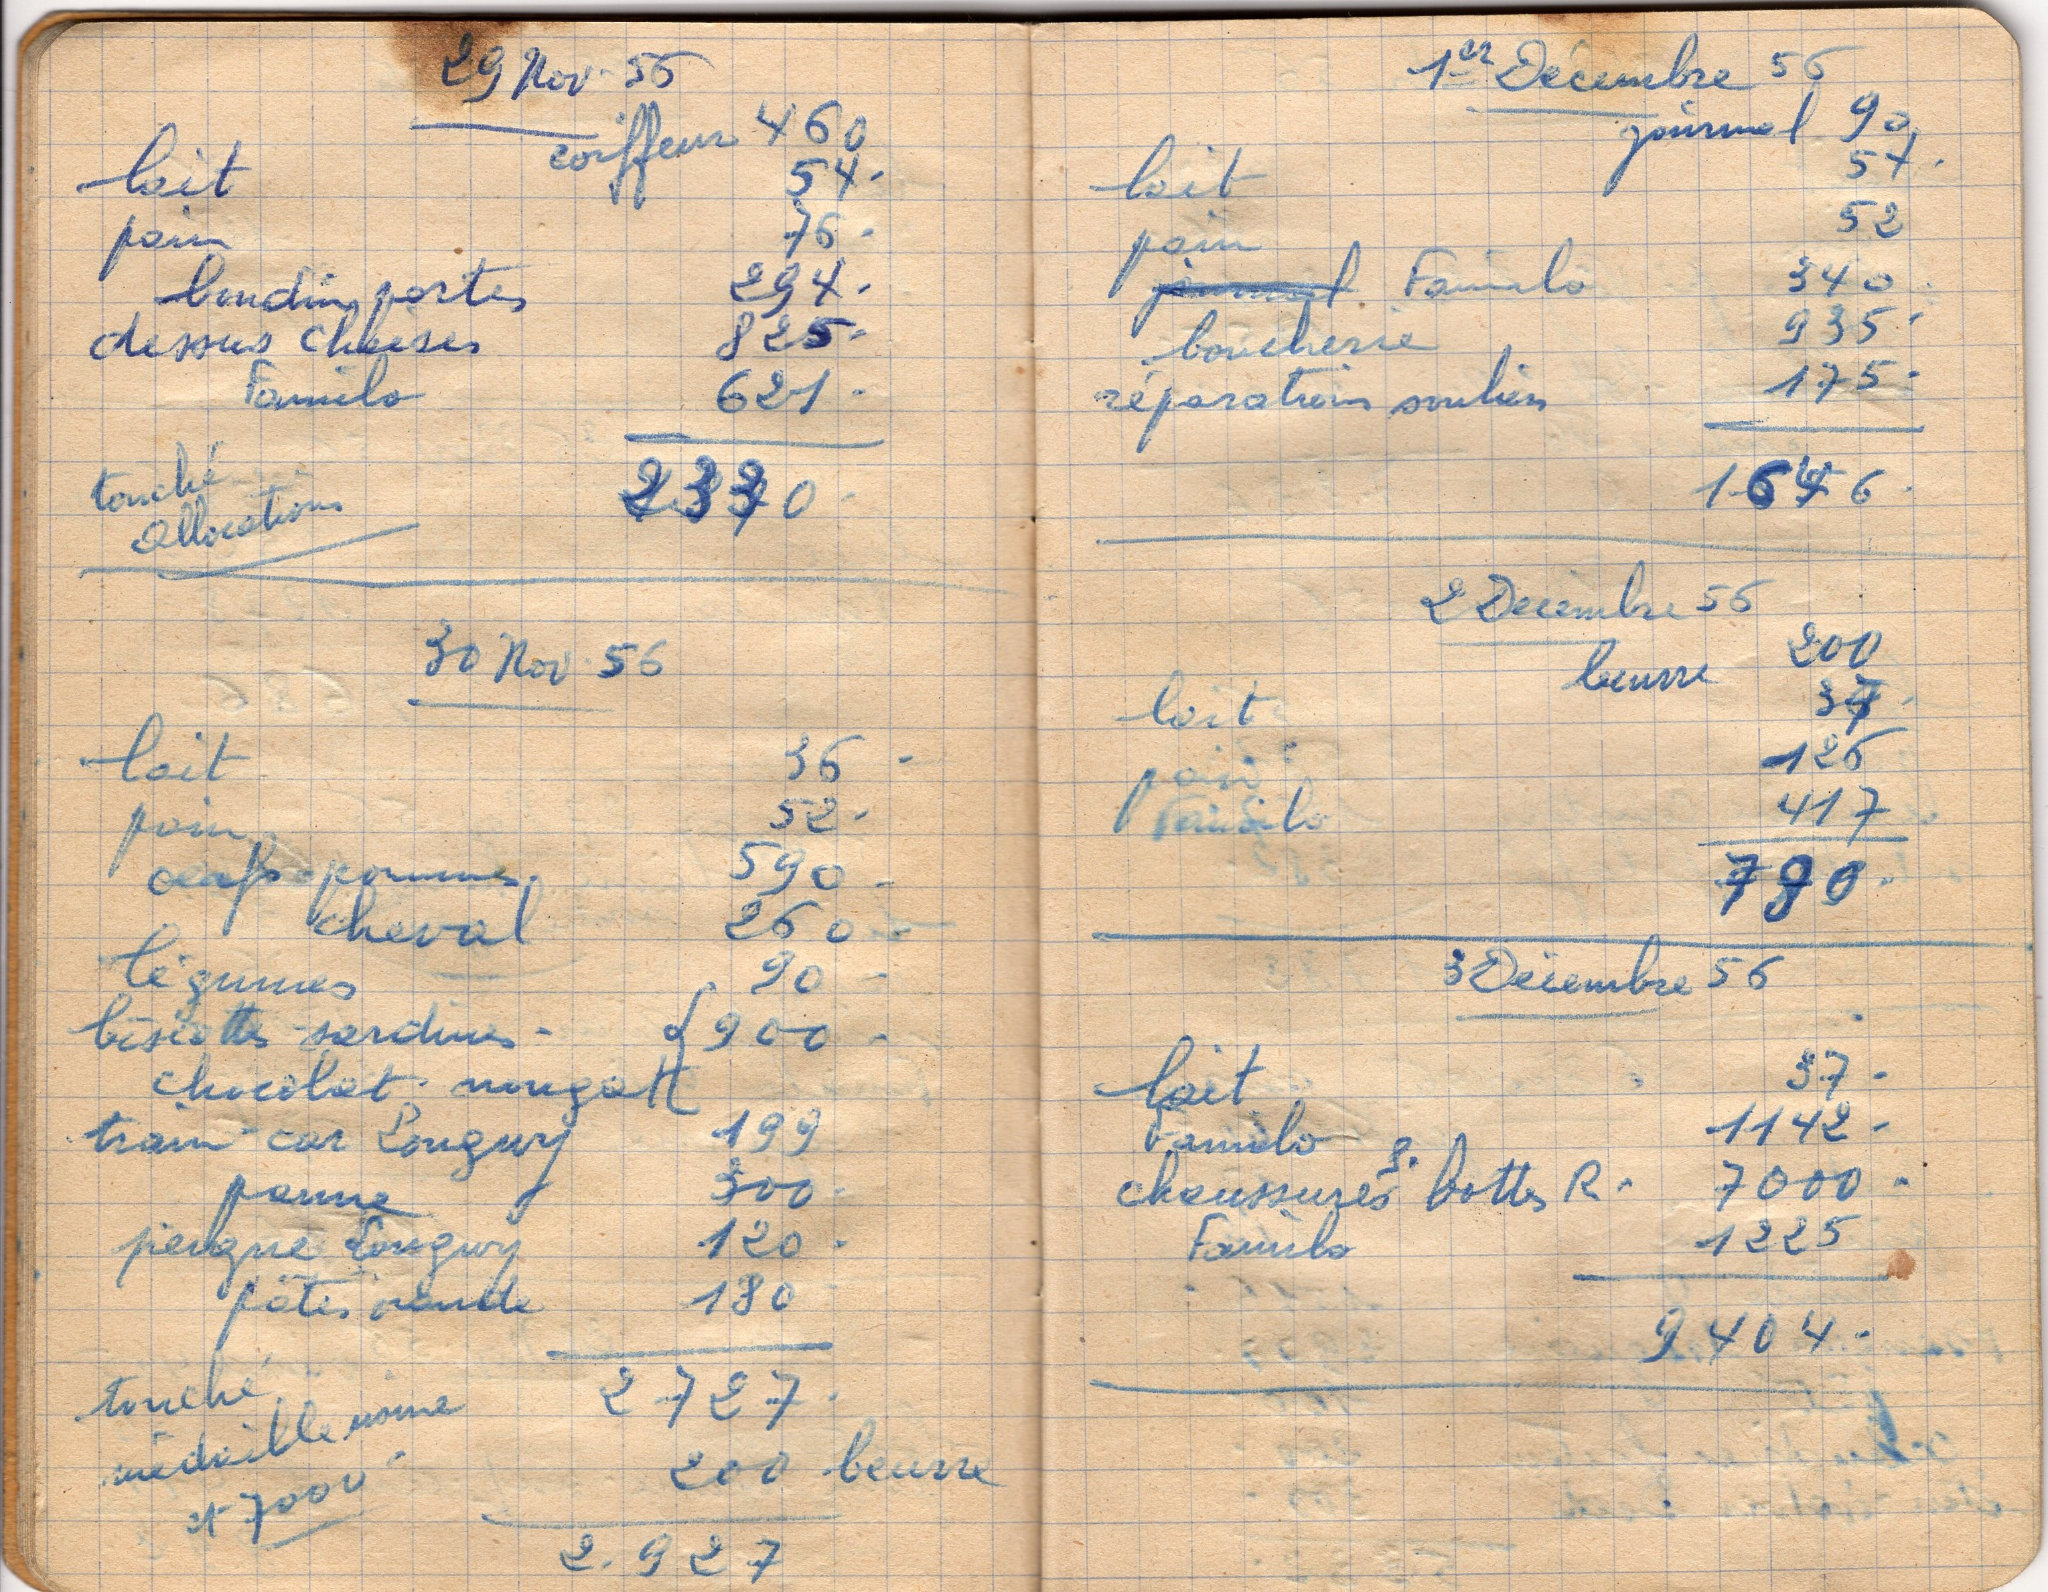 29 Nov. 56
coiffeur 460
lait 54.
pain 76.
boudin, portes 294.
dessus chaises 825.
Familo 621.
touché 2330.
allocations
30 Nov. 56
lait 36.
pain 52.
oeufs pommes 590.
cheval 260
légumes 90
biscottes sardines. 900.
chocolat. nougat
train car Longwy 199
panne 300.
peigne Longwy 120.
pâtes viande 180
touché 2727.
médaille 200 beurre
+ 7000
2.927
1er Décembre 56
journal 90
lait 54.
pain 52
journal Familo 340.
boucherie 935.
réparations souliers 175.
1646.
2 Decembre 56
beurre 200
lait 37.
pain 126
Familo 417
780.
3 Décembre 56
lait 37.
Familo 1142.
chaussures bottes R. 7000.
Familo 1225
9404.